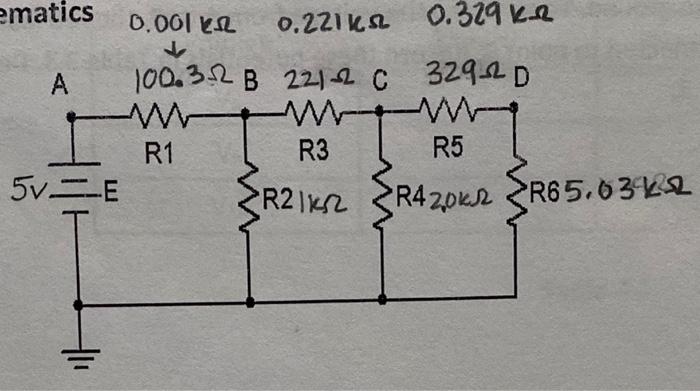 ematics 0.001 kΩ 0.221kΩ 0.329 kΩ
A 100.3Ω B 221Ω C 329Ω D
R1 R3 R5
5v E R2 1kΩ R4 2.0kΩ R6 5.03kΩ